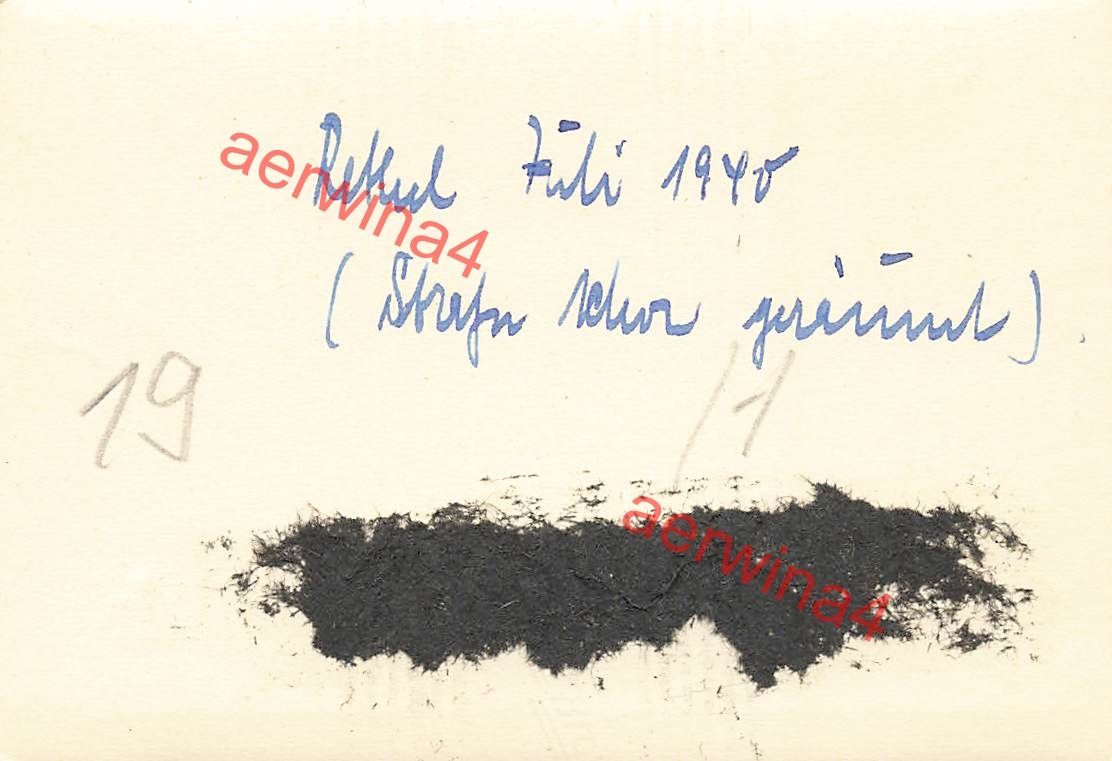 aerwina4
Rethel Juli 1940
(Straßen schon geräumt).
19
/1
aerwina4